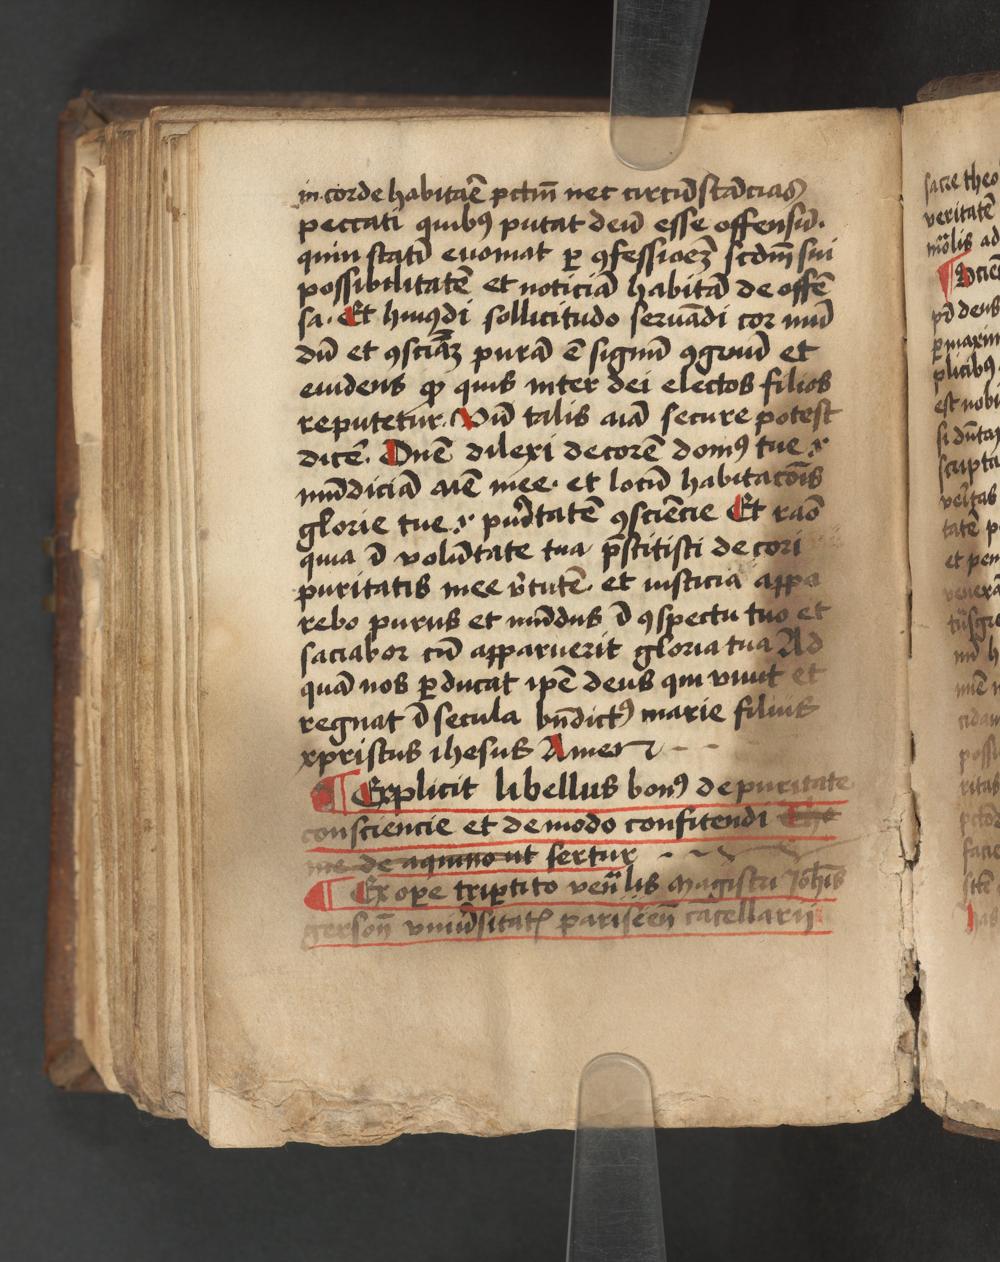 in corde habitare̅ pctm̅ nec circu̅sta̅cias
peccati quibꝯ putat deu̅ esse offensu̅.
quin stati̅ euomat ꝑ ꝯfessioeꝫ scdm̅ sui
possibilitate̅ et noticia̅ habita̅ de offe̅
sa. Et hmꝯdi sollicitudo serua̅di cor mu̅
du̅ et ꝯscia̅ꝫ pura̅ e̅ signu̅ ꝯgruu̅ et
euidens ꝙ quis inter dei electos filios
reputetur. Vn̅ talis aia̅ secure potest
dice̅. Dne̅ dilexi decore̅ domꝯ tue .s.
mu̅dicia̅ aie̅ mee. et locu̅ habitaco̅is
glorie tue .s. pur̅itate̅ ꝯscie̅cie Et rao̅
quia i̅ volu̅tate tua p̅stitisti decori
puritatis mee v̅tute̅. et iusticia appa
rebo purus et mu̅dus i̅ ꝯspectu tuo et
saciabor cu̅ apparuerit gloria tua Ad
qua̅ nos ꝑducat ip̅e deus qui viuit et
regnat i̅ secula bn̅dictꝯ marie filius
xpristus ihesus Amen
Explicit libellus bonꝯ de puritate
consciencie et de modo confitendi Tho
me de aquino ut fertur
Ex oꝑe triꝑtito ven̅lis magistri Joh̅is
gerson̅ vniu̅sitatꝭ parisien̅ ca̅cellarij
sacre theo
veritate̅
mo̅lis ad
p̅d deus
ꝑ maxim
plicibꝯ
est nobi
si du̅tax
scripta
veritas
tate̅ p
et pen
venera